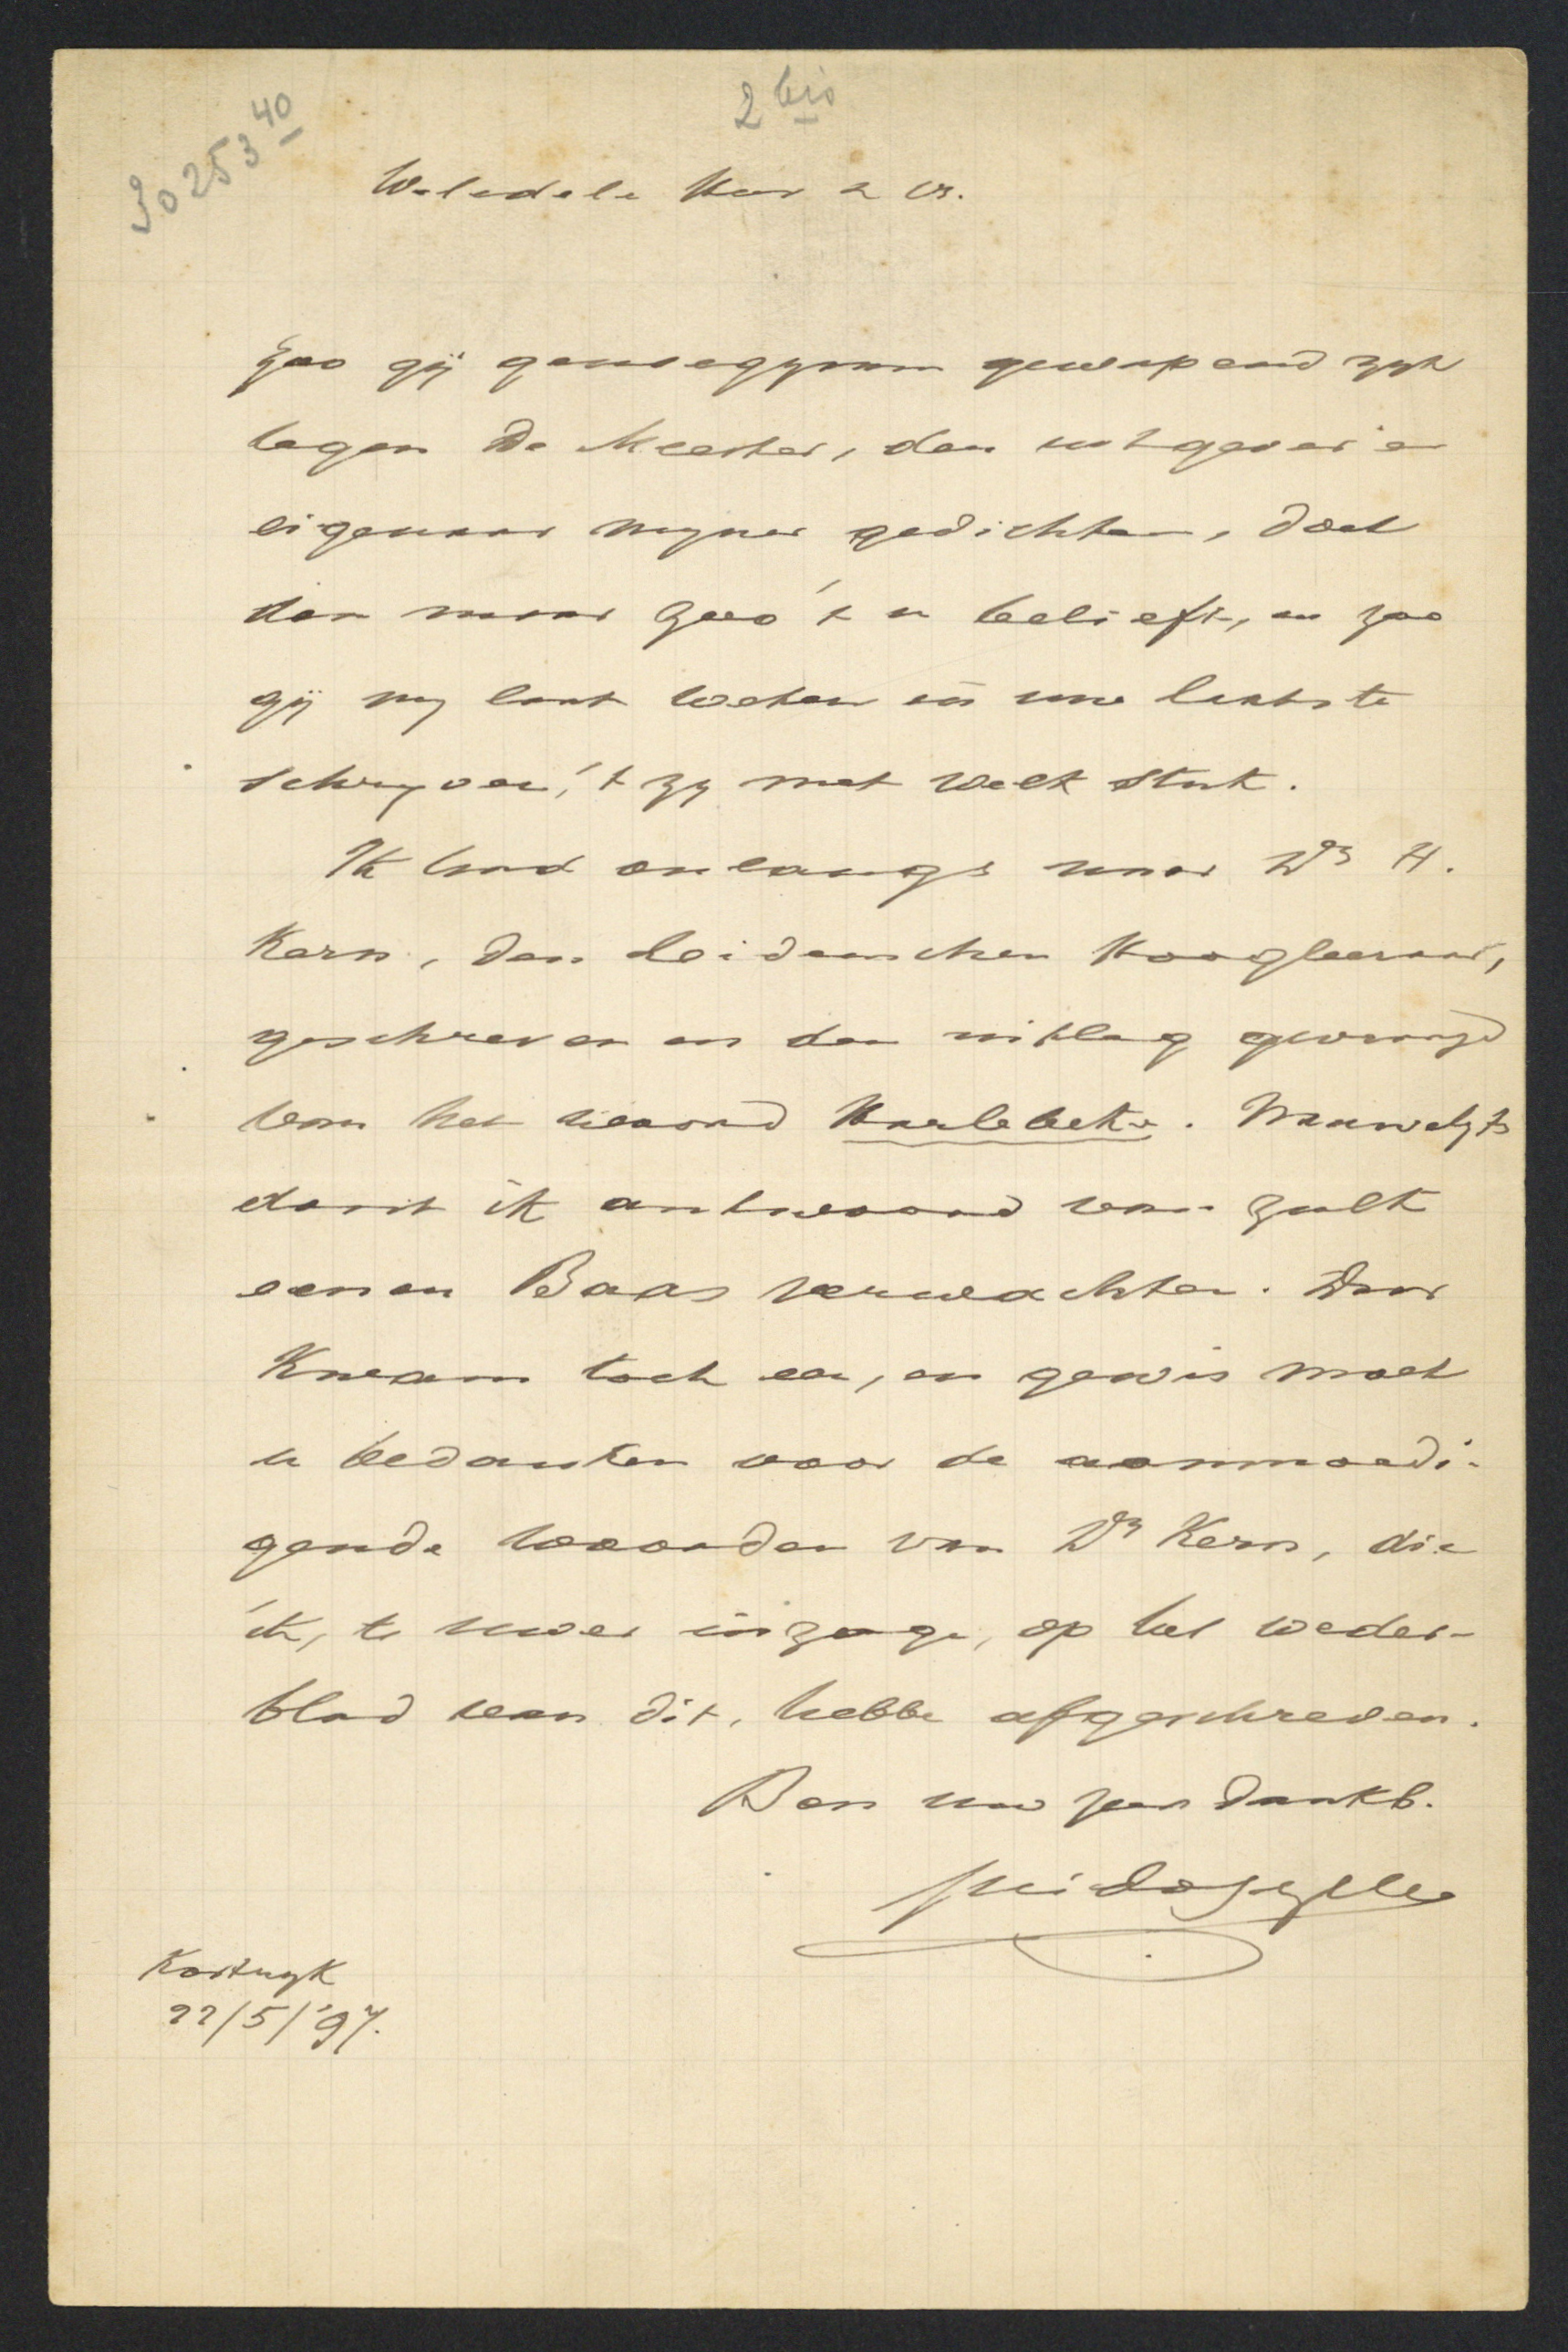 2 bis
302534o
Weledele Heer & Vr.
Zoo gij genoegzaam gewapend zyt
tegen De Meester, den uitgever en
eigenaar myner gedichten, doet
dan maar zoo 't u belieft, en zoo
gij my laat weten in uw laatste
schryven, 't zy met welk stuk.
Ik had onlangs naar Dr H.
Kern, den Leidenschen Hoogleeraar,
geschreven en den uitleg gevraagd
van het woord Harlebeke. Nauwelyks
dorst ik antwoord van zulk
eenen Baas verwachten. Daar
kwam toch een, en gewis moet
u bedanken voor de aanmoedi-
gende woorden van Dr Kern, die
ik, te uwer inzage, op het weder-
blad van dit, hebbe afgeschreven.
Ben uw zeer dankb.
Guido Gezelle
Kortryk
22/5/'97.